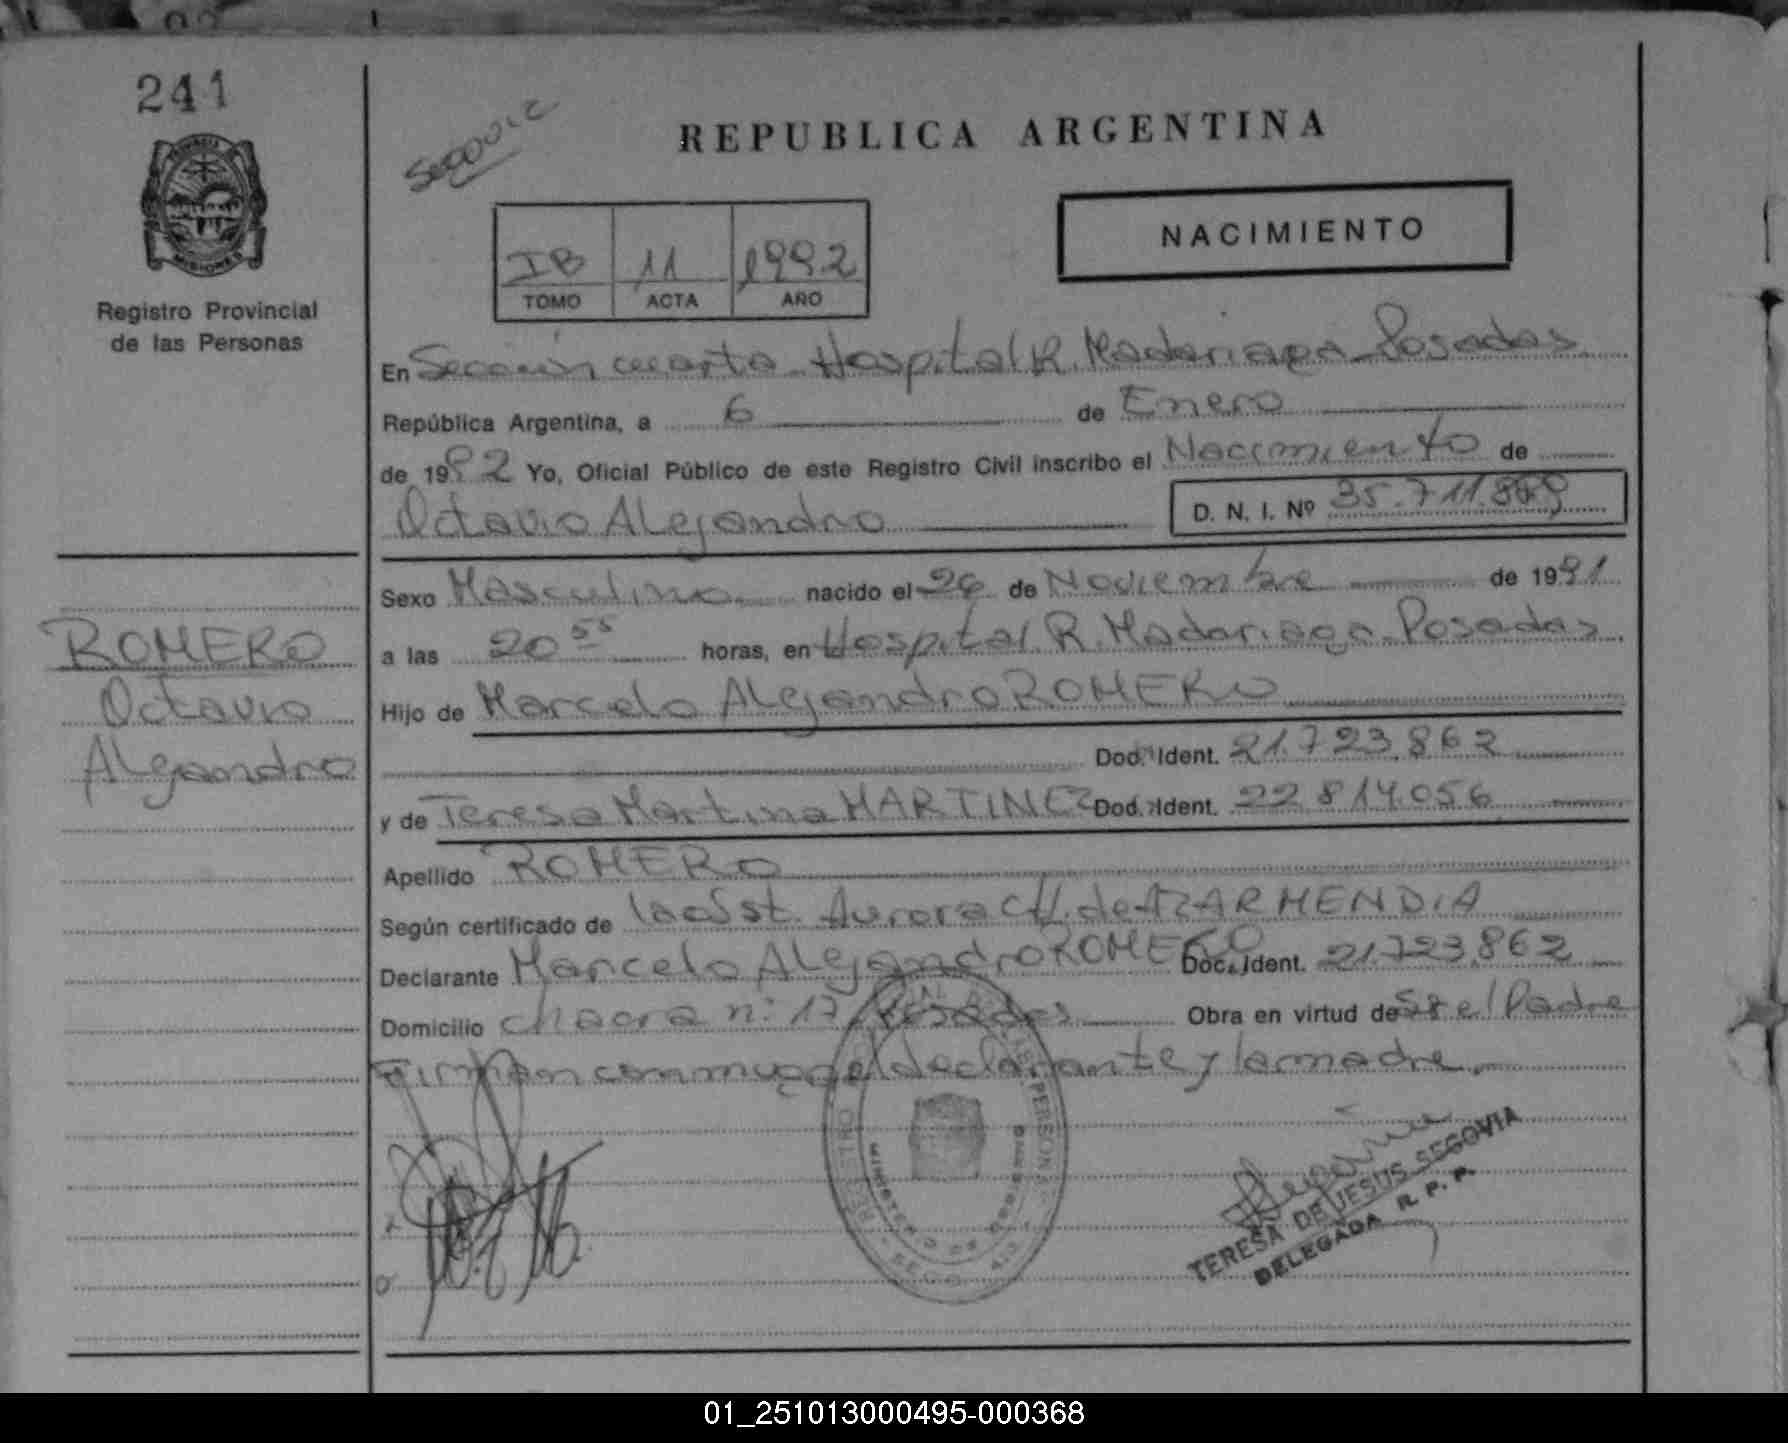 241
REPUBLICA ARGENTINA
NACIMIENTO
PROVINCIA
MISIONES
Registro Provincial
de las Personas
IB 11 1992
TOMO ACTA AÑO
En Sección cuarta Hospital R. Madariaga Posadas
República Argentina, a 6 de Enero
de 1992 Yo, Oficial Público de este Registro Civil inscribo el Nacimiento de
Octavio Alejandro D. N. I. Nº 35.711.
Sexo Masculino nacido el 26 de Noviembre de 1991
a las 20 55 horas, en Hospital R. Madariaga Posadas
Hijo de Marcelo Alejandro ROMERO
Doc. Ident. 21.723.862
y de Teresa Martina MARTINEZ Doc. Ident. 22.814.056
Apellido ROMERO
Según certificado de la obst. Aurora CH. de AZARMENDIA
Declarante Marcelo Alejandro ROMERO Doc. Ident. 21.723.862
Domicilio chacra n: 17 Posadas Obra en virtud de Sr el Padre
Firman conmigo el declarante y la madre
ROMERO
Octavio
Alejandro
TERESA DE JESUS SEGOVIA
DELEGADA R. P. P.
01_251013000495-000368